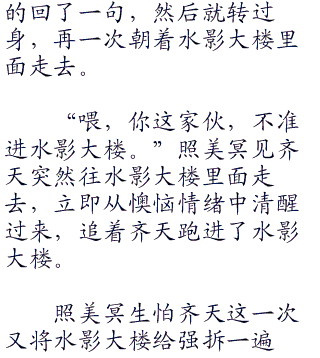 的回了一句，然后就转过
身，再一次朝着水影大楼里
面走去。
“喂，你这家伙，不准
进水影大楼。”照美冥见齐
天突然往水影大楼里面走
去，立即从懊恼情绪中清醒
过来，追着齐天跑进了水影
大楼。
照美冥生怕齐天这一次
又将水影大楼给强拆一遍